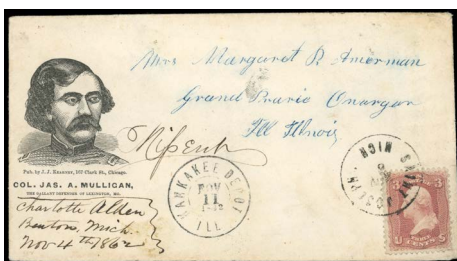 Mrs Margaret P. Amerman
Grand Prarie Onargor
Ill Illinois
Pub. by J. J. Kearney, 167 Clark St., Chicago.
COL. JAS. A. MULLIGAN,
THE GALLANT DEFENDER OF LEXINGTON, MO.
Charlotte Alden
Benton, Mich.
Nov 4th 1862
KANKAKEE DEPOT
NOV
11
ILL
SAINT JOSEPH
MICH
3
U S